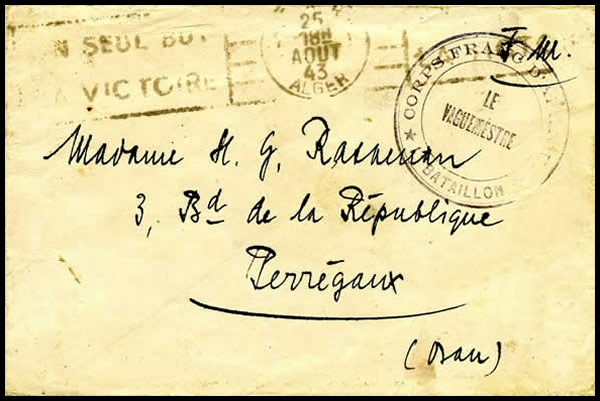 UN SEUL BUT
VICTOIRE
25
18H
AOUT
43
ALGER
F. M.
CORPS FRANC D'AFRIQUE
LE
VAGUEMESTRE
★ BATAILLON
Madame H. G.
3, Bd de la République
Perrégaux
(Oran)